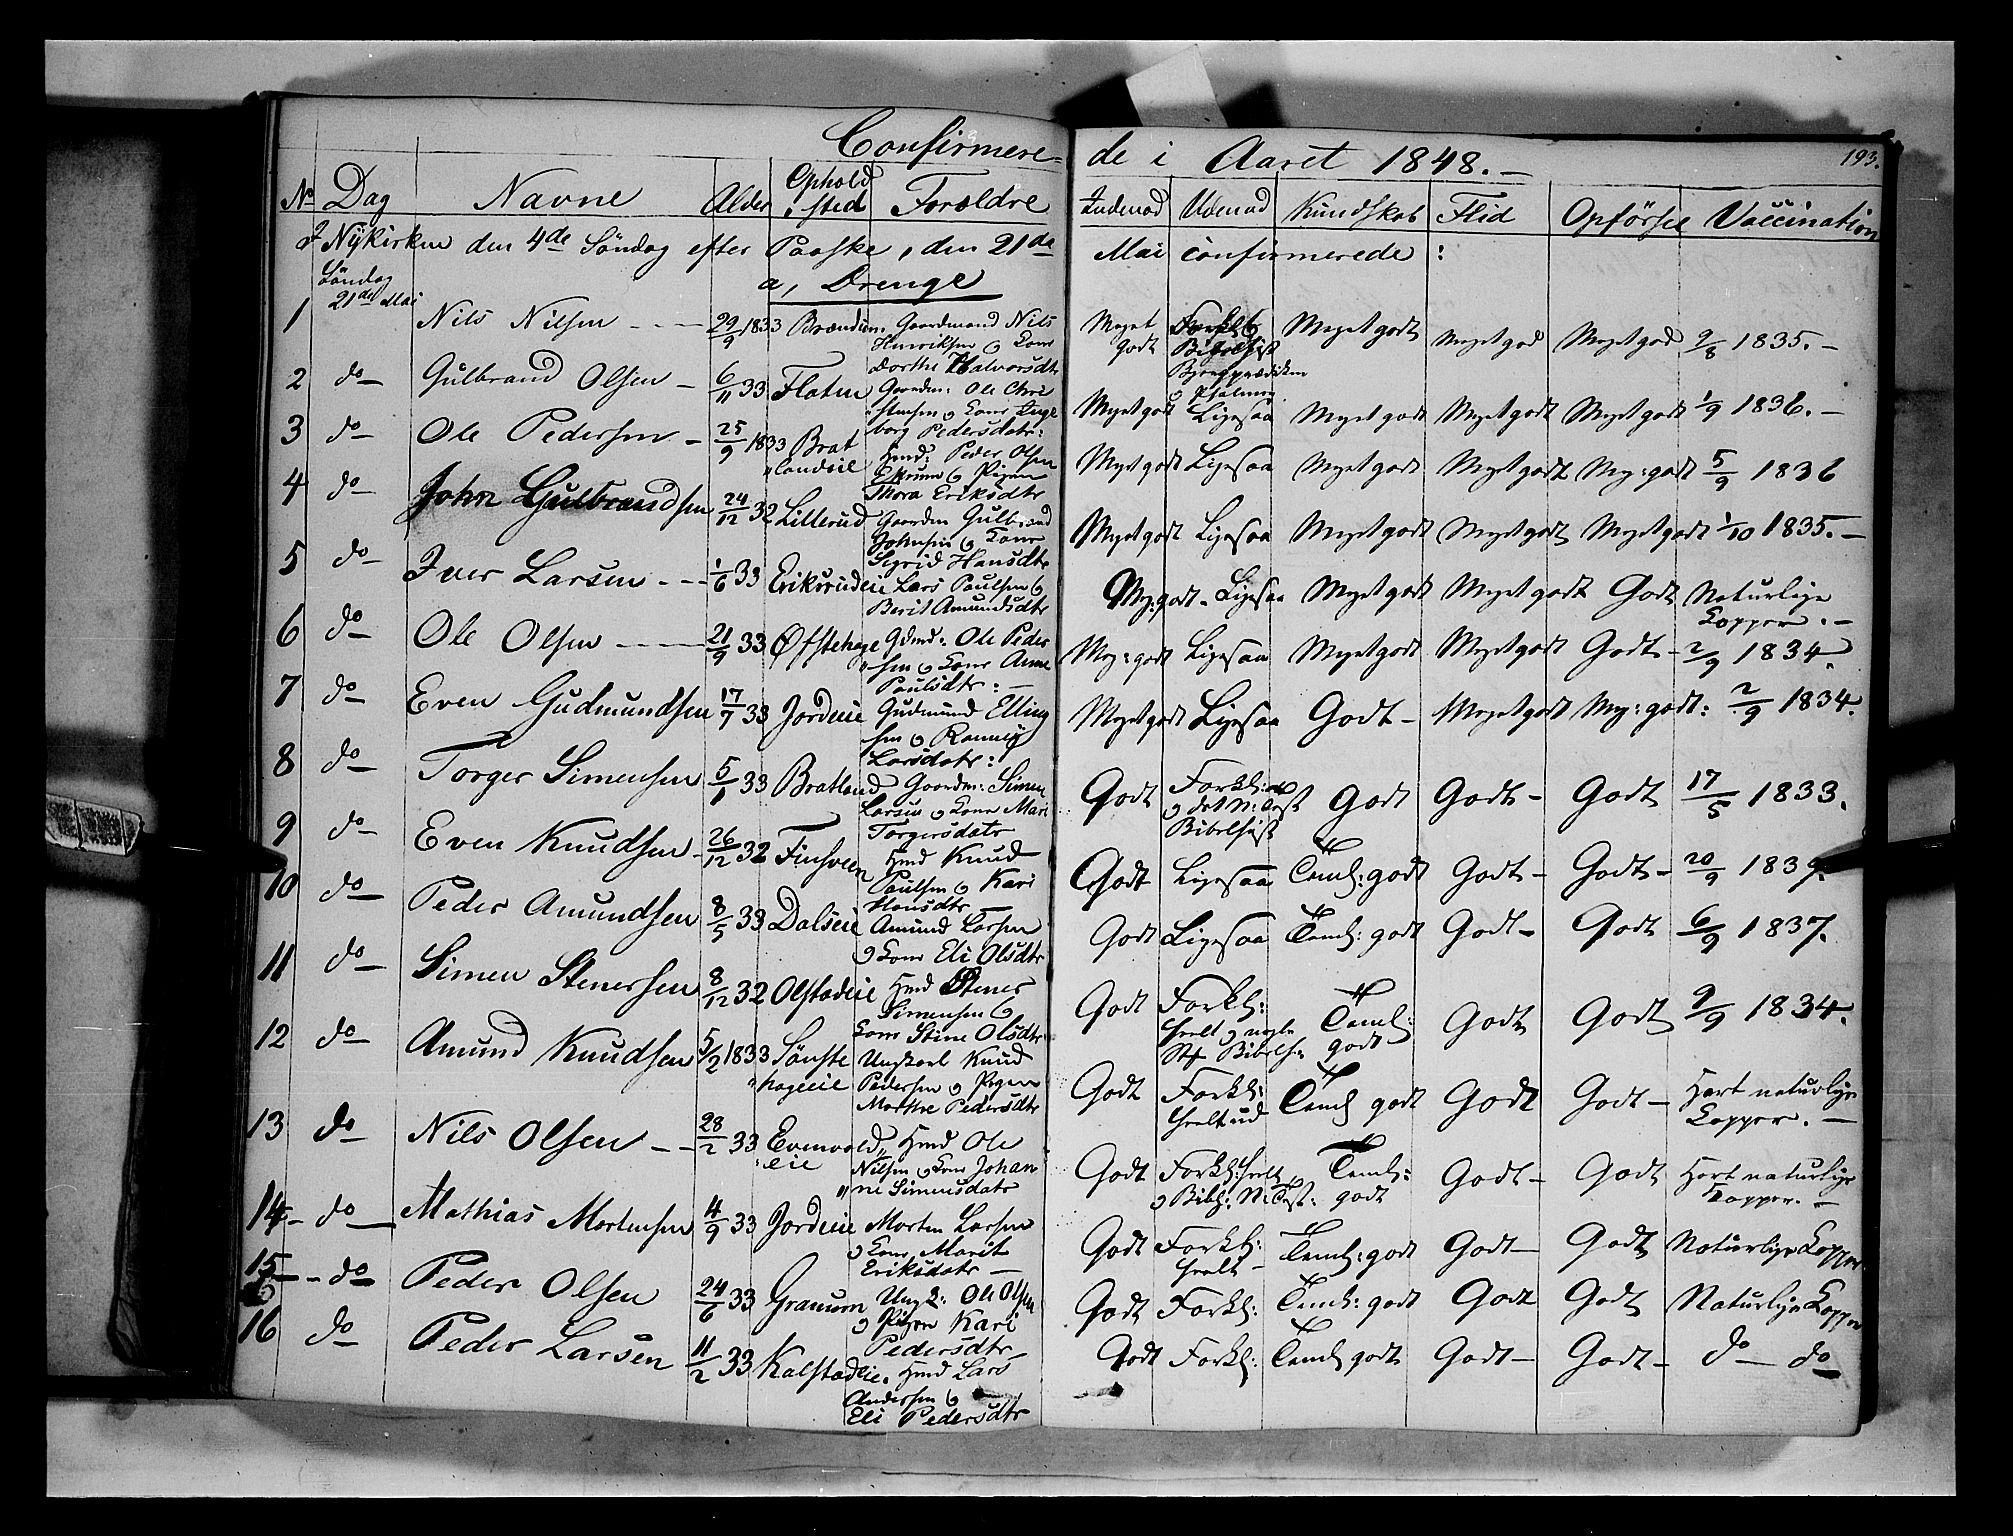 Confirmere= de i Aaret 1848. —
193.
No Dag Navne Alder Ophold sted Forældre Indenad Udenad Kundskab Flid Opførsel Vaccination
I Nykirken den 4de Søndag efter Paaske, den 21de Mai confirmerede :
Søndag
21de Mai
a, Drenge
1 Nils Nilsen - - - 29/9 1833 Gaardmand Nils Meget godt Meget godt Meget god Meget god 9/8 1835. —
Henriksen og Kone Bibelhist
Dorthe Halvorsdtr Bjergprædiken
2 do — Gulbrand Olsen — 6/11 33 Flaten Gaardm: Ole Chri Meget godt Ligesaa Meget godt Meget godt Meget godt 1/9 1836. —
stensen og Kone Inge
borg Pedersdatr:
3 do — Ole Pedersen — 25/9 1833 Brat Hmd: Peder Olsen Meget godt Ligesaa Meget godt Meget godt Meg: godt 5/9 1836
landseie og Pigen
Thora Eriksdtr
4 do — John Gulbrandsen 24/12 32 Lillerud Gaardm Gulbrand Meget godt Ligesaa Meget godt Meget godt Meget godt 1/10 1835. —
Johnsen og Kone
Sigrid Hansdtr
5 do — Iver Larsen - - - 1/6 33 Eriksrudeie Lars Paulsen og Meg: godt - Ligesaa Meget godt Meget godt Godt Naturlige
Berit Amundsdtr Kopper. —
6 do — Ole Olsen - - - 21/9 33 Øfstehage Gdmd: Ole Peder Meg: godt Ligesaa Meget godt Meget godt Godt - 2/9 1834.
sen og Kone Anne
Paulsdtr: —
7 do — Even Gudmundsen 17/7 33 Jordeie Gudmund Elling Meget godt Ligesaa Godt - Meget godt Meg: godt: 2/9 1834.
sen og Rønnøg
Larsdatr:
8 do — Torger Simensen 5/1 33 Bratland Gaardm: Simen Godt Forkl: Godt Godt - Godt 17/5 1833.
Larsen og Kone Mari og det N: Test
Torgersdatr Bibelhist
9 do — Even Knudsen - 26/12 32 Finsveen Hmd Knud Godt Ligesaa Teml: godt Godt - Godt - 20/9
Paulsen og Kari
Hansdtr —
10 do — Peder Amundsen 8/5 33 Dalseie Amund Larsen Godt Ligesaa Teml: godt Godt - Godt 6/9 1837.
og Kone Eli Olsdtr
11 do — Simen Stenersen 8/12 32 Olstadeie Hmd Stener Godt Forkl: Teml: Godt Godt 9/9 1834.
Simensen og heelt og nogle godt
Kone Stine Olsdtr Bibelh:
12 do — Amund Knudsen 5/2 1833 Sønste Ungkarl Knud Godt Forkl: Teml godt Godt Godt - Havt naturlige
hageeie Pedersen og Pigen heelt ud Kopper. —
Marthe Pedersdtr
13 do — Nils Olsen - - 28/2 33 Evenvold Hmd Ole Godt Forkl: heelt Teml: Godt - Godt Havt naturlige
eie Nilsen og Kone Johan og Bibl: N: Test: godt Kopper. —
ne Simensdatr
14 - do — Mathias Mortensen 4/9 33 Jordeie Morten Larsen Godt Forkl: Teml: godt Godt - Godt Naturlige Kopper
og Kone Marit heelt -
Eriksdatr —
15 - do — Peder Olsen 24/6 33 Granum Ungk: Ole Olsen Godt Forkl: Teml: godt Godt Godt Naturlige Kopper
og Pigen Kari
Pedersdtr —
16 do — Peder Larsen 11/2 33 Kalstadeie. Hmd Lars Godt Forkl: Teml godt Godt - Godt - do — do —
Andersen og
Eli Pedersdtr